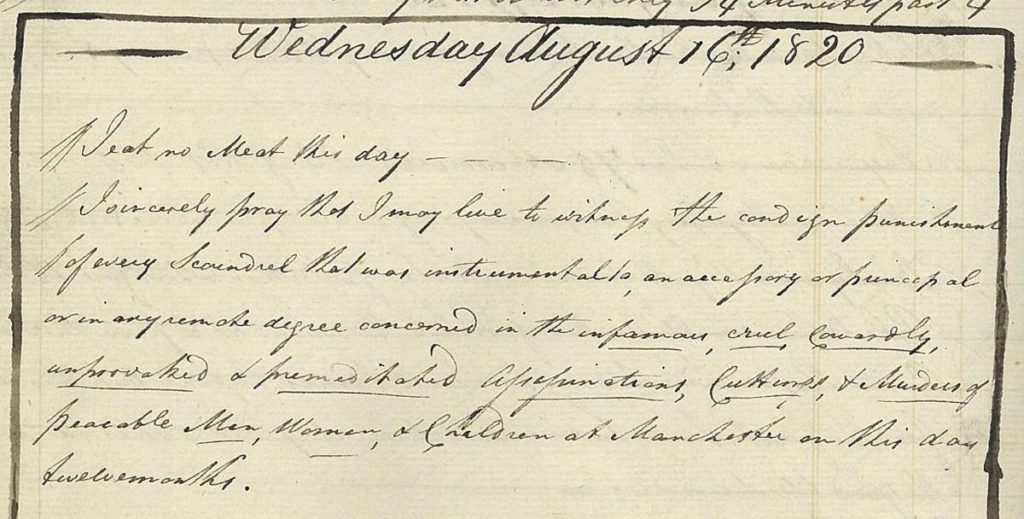 14 Minutes past 4
Wednesday August 16th, 1820
I eat no Meat this day — — —
I sincerely pray that I may live to witness the condign punishment
of every Scoundrel that was instrumental to, an accessory or principal
or in any remote degree concerned in the infamous, cruel, Cowardly,
unprovoked & premeditated Assassinations, Cuttings, & Murders of
peacable Men, Women, & Children at Manchester on this day
twelvemonths.